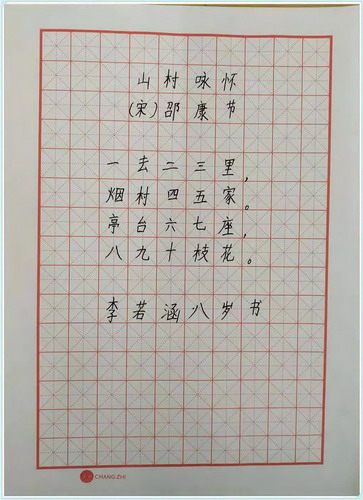 山村咏怀
(宋)邵康节
一去二三里，
烟村四五家。
亭台六七座，
八九十枝花。
李若涵八岁书
CHANG ZHI